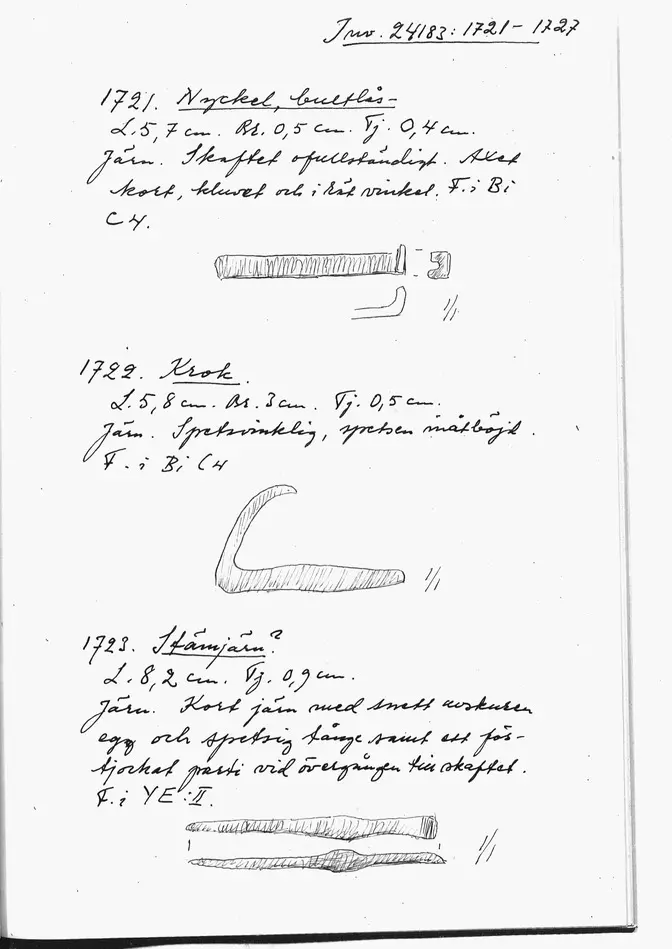 Inv. 24183: 1721 – 1727
1721. Nyckel, bultlås-
L. 5,7 cm. Br. 0,5 cm. Tj. 0,4 cm.
Järn. Skaftet ofullständigt. Axet
kort, kluvet och i rät vinkel. F. i Bi
C4.
1/1
1722. Krok.
L. 5,8 cm. Br. 3 cm. Tj. 0,5 cm.
Järn. Spetsvinklig, spetsen inåtböjd.
F. i Bi C4
1/1
1723. Stämjärn?
L. 8,2 cm. Tj. 0,9 cm.
Järn. Kort järn med snett avskuren
egg och spetsig tånge samt ett för-
tjockat parti vid övergången till skaftet.
F. i YE:II.
1/1